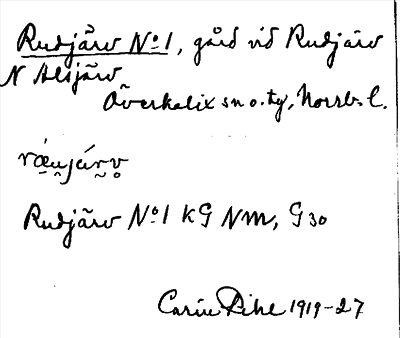 Rudjärv No 1, gård vid Rudjärv
N Alsjärv
Överkalix sn o. tg, Norrb. l.
Rudjärv No 1 KG NM, G 30
Carin Pihl 1919-27